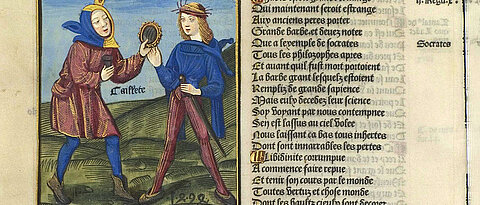 ii. Regū.x.
Qui maintenant seroit estrange
Aux anciens peres porter
Grande barbe et deuez noter
Que a lexemple de socrates
Socrates
Tous les philosophes apres
Et auant quil fust mort portoient
La barbe grant lesquelz estoient
Rempliz de grande sapience
Mais eulx decedez leur science
Soy voyant par nous contempnee
Sen est lassus au ciel volee
Nous laissant ca bas tous inhertes
Dont sont innarrables les pertes
Libidinite corrumpue
A commence faire repue
Et tenir son cours par le monde
Toutes vertuz et chose monde